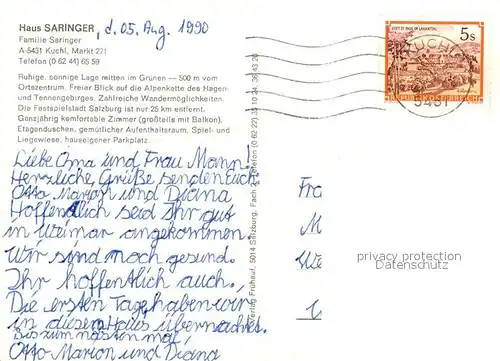 Haus SARINGER
d. 05. Aug. 1990
Familie Saringer
A-5431 Kuchl, Markt 271
Telefon (0 62 44) 65 59
Ruhige, sonnige Lage mitten im Grünen — 500 m vom
Ortszentrum. Freier Blick auf die Alpenkette des Hagen-
und Tennengebirges. Zahlreiche Wandermöglichkeiten.
Die Festspielstadt Salzburg ist nur 25 km entfernt.
Ganzjährig komfortable Zimmer (großteils mit Balkon),
Etagenduschen, gemütlicher Aufenthaltsraum, Spiel- und
Liegewiese, hauseigener Parkplatz.
Liebe Oma und Frau Mann!
Herzliche Grüße senden Euch
Otto Marion und Diana
Hoffendlich seid Ihr gut
in Weimar angekommen.
Wir sind noch gesund.
Ihr hoffentlich auch.
Die ersten Tage haben wir
in diesem Haus übernachtet.
Bis zum nächsten mal,
Otto Marion und Diana
Verlag Fruhauf, 5014 Salzburg, Fach 2, Telefon (0 62 22) 35 10 24, 36 43 20
STIFT ST. PAUL IM LAVANTTAL
5s
REPUBLIK ÖSTERREICH
KUCHL
5431
Fra
M
We
privacy protection
Datenschutz